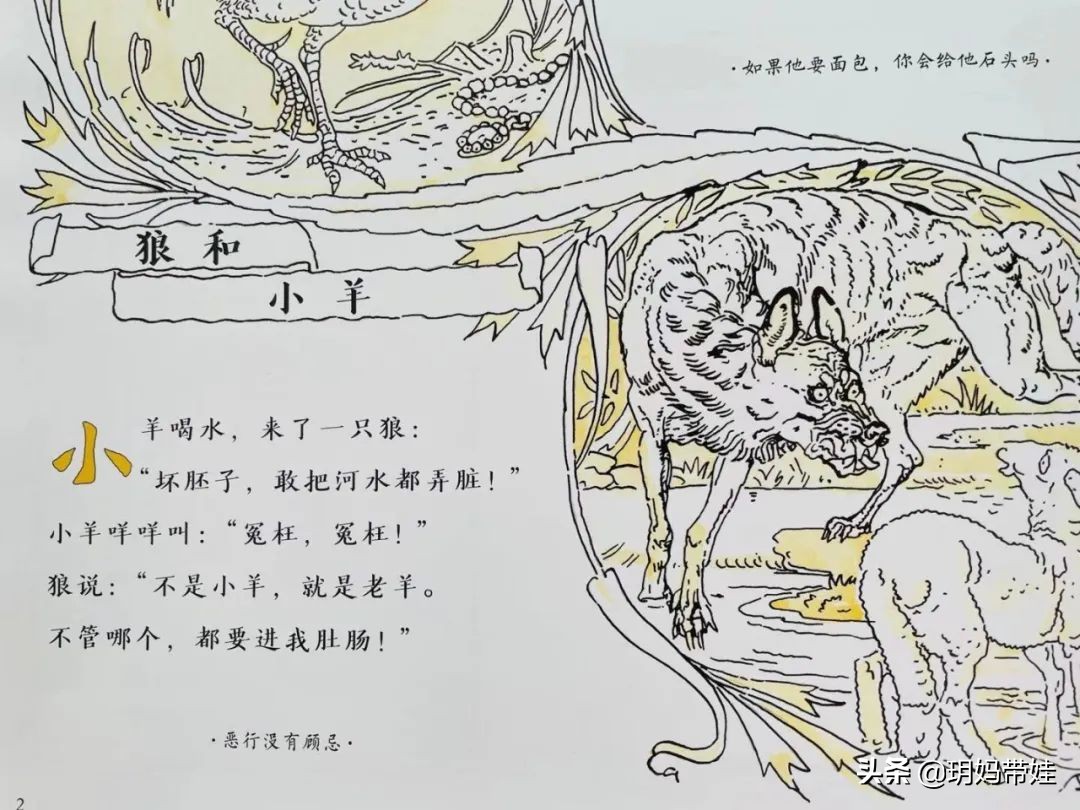 ·如果他要面包，你会给他石头吗·
狼和
小羊
小羊喝水，来了一只狼：
“坏胚子，敢把河水都弄脏！”
小羊咩咩叫：“冤枉，冤枉！”
狼说：“不是小羊，就是老羊。
不管哪个，都要进我肚肠！”
·恶行没有顾忌·
2
头条 @玥妈带娃